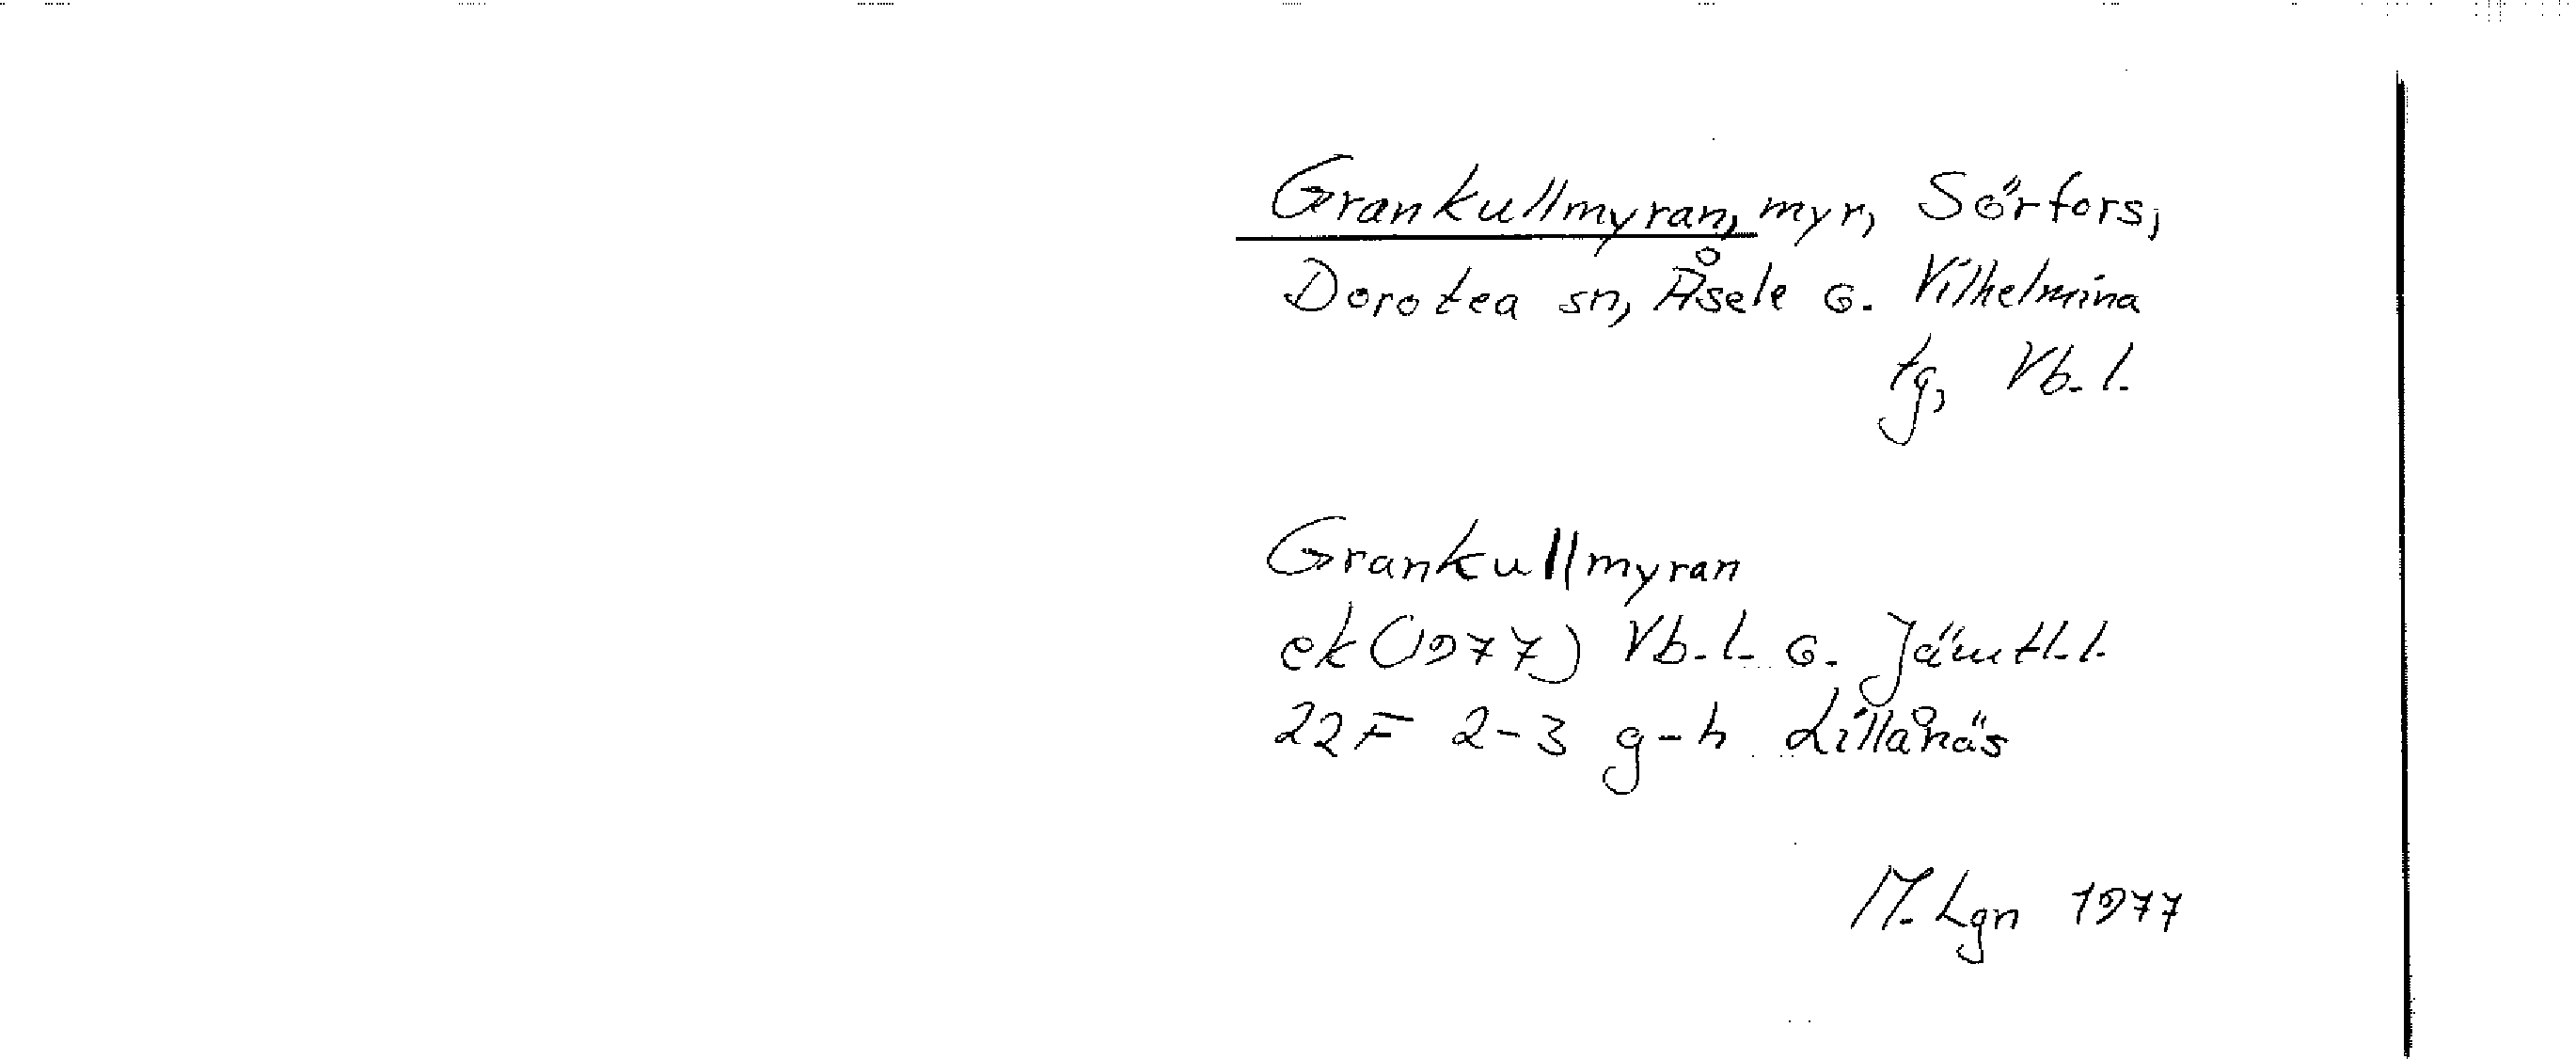 Grankullmyran, myr, Sörfors,
Dorotea sn, Åsele o. Vilhelmina
tg, Vb.l.
Grankullmyran
ek (1977) Vb.l. o. Jämtl.l.
22F 2-3 g-h Lillånäs
M. Lgn 1977